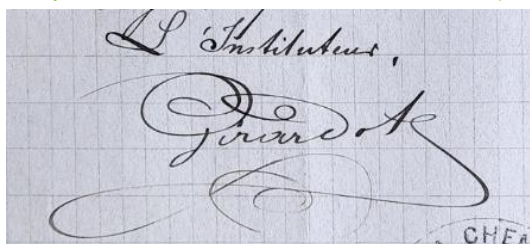 L'Instituteur,
Girardot
CHE